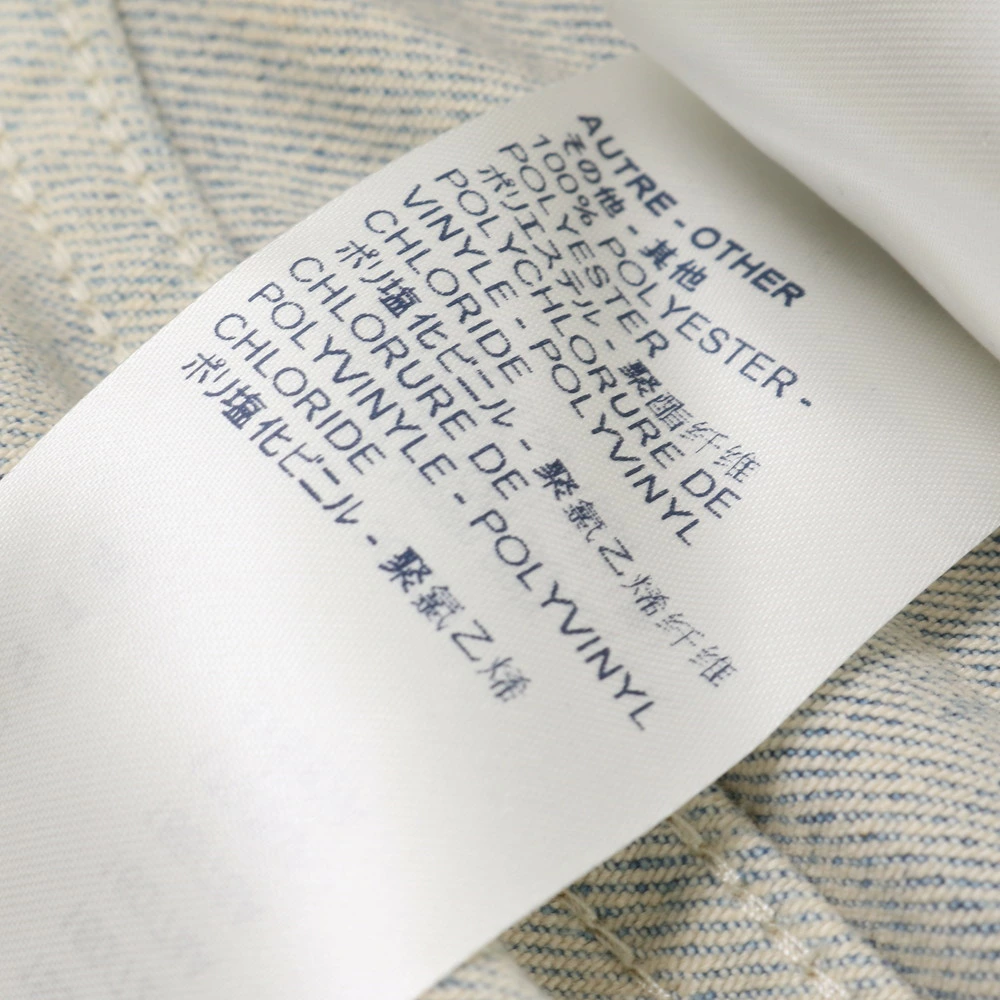 AUTRE - OTHER
その他 - 其他
100% POLYESTER -
POLYESTER
ポリエステル - 聚酯纤维
POLYCHLORURE DE
VINYLE - POLYVINYL
CHLORIDE
ポリ塩化ビニール - 聚氯乙烯纤维
CHLORURE DE
POLYVINYLE - POLYVINYL
CHLORIDE
ポリ塩化ビニール - 聚氯乙烯